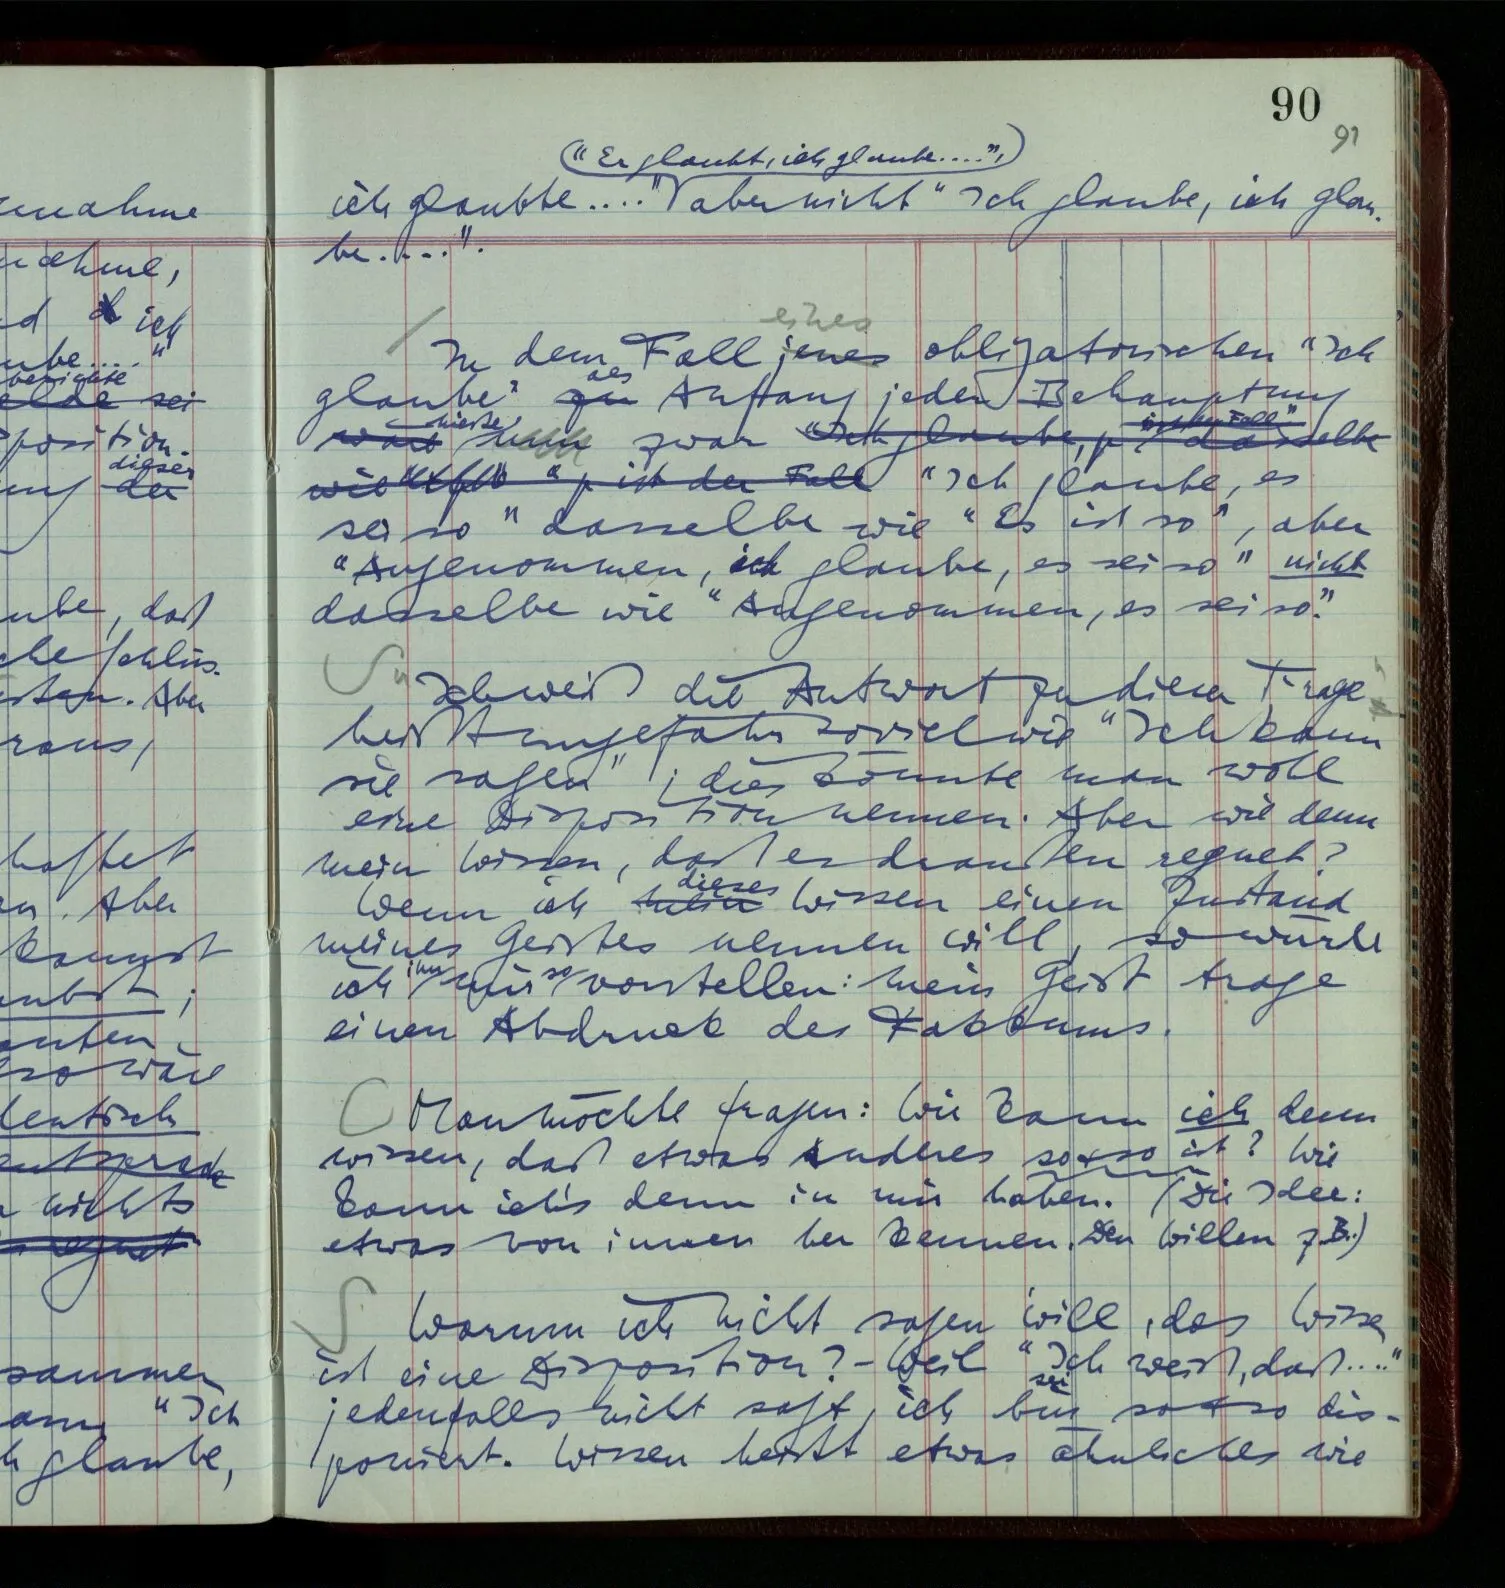 90
91
("Er glaubt, ich glaube....",)
ich glaubte...." aber nicht "Ich glaube, ich glau-
be....".
eines
In dem Fall jenes obligatorischen "Ich
des
glaube" zu Anfang jeder Behauptung
hieße ist der Fall"
wäre zwar "Ich glaube, p dasselbe
wie "p ist der Fall "Ich glaube, es
sei so" dasselbe wie "Es ist so", aber
"Angenommen, ich glaube, es sei so" nicht
dasselbe wie "Angenommen, es sei so."
"Ich weiß die Antwort zu dieser Frage"
heißt ungefähr soviel wie "Ich kann
sie sagen"; dies könnte man wohl
eine Disposition nennen. Aber wie denn
mein Wissen, daß es draußen regnet?
dieses
Wenn ich mein Wissen einen Zustand
meines Geistes nennen will, so würde
ihn so
ich mir vorstellen: mein Geist trage
einen Abdruck des Faktums.
Man möchte fragen: Wie kann ich denn
wissen, daß etwas Anderes so & so ist? Wie
kann ich's denn in mir haben. (Die Idee:
etwas von innen her kennen. Den Willen z.B.)
Warum ich nicht sagen will, das Wissen
ist eine Disposition? – Weil "Ich weiß, daß...."
sei
jedenfalls nicht sagt, ich bin so & so dis-
poniert. Wissen heißt etwas ähnliches wie
nahme
nahme,
ich
be....."
berichte
sei
position.
dieser
der
ube, daß
che Schlüs-
Aber
raus,
haftet
Aber
kannst
so wäre
identisch
nichts
regnet
sammen
"Ich
glaube,